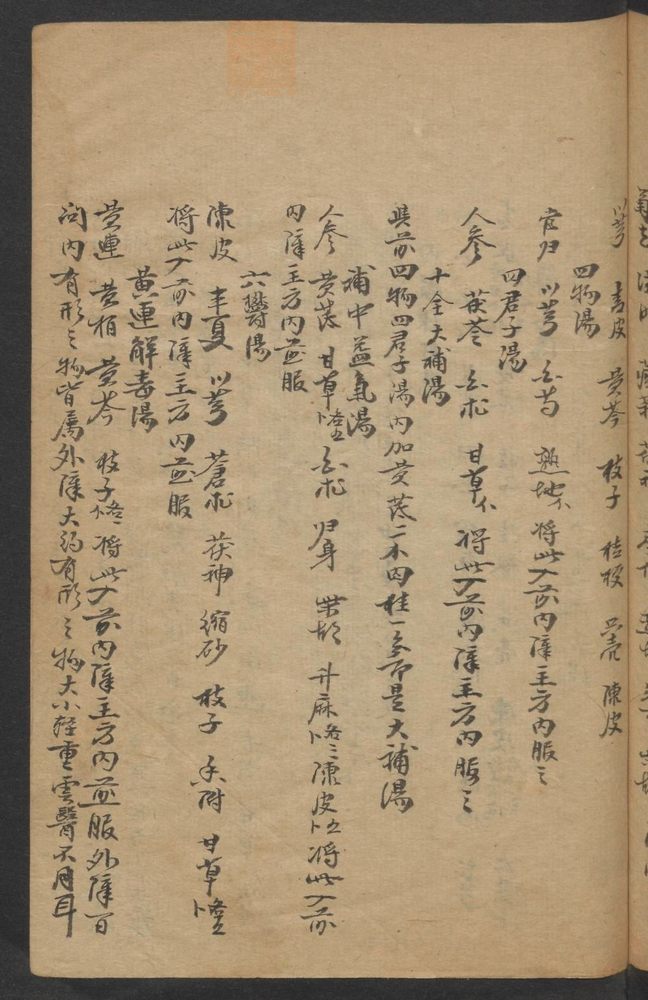 川芎 青皮 黄芩 枝子 桔梗 只壳 陳皮
四物湯
官归 川芎 白芍 熟地 将此入前内障主方内服之
四君子湯
人参 茯苓 白朮 甘草 将此入前内障主方内服之
十全大補湯
與前四物四君子湯内加黄芪二 肉桂一 即是大補湯
補中益氣湯
人参 黄芪 甘草 白朮 归身 柴胡 升麻 陳皮 将此入前
内障主方内並服
六鬱湯
陳皮 半夏 川芎 蒼朮 茯神 縮砂 枝子 香附 甘草
将此入前内障主方内並服
黄連解毒湯
黄連 黄柏 黄芩 枝子 将此入前内障主方内並服外障百
问内有形之物皆属外障大约有形之物大小轻重雲翳不同耳